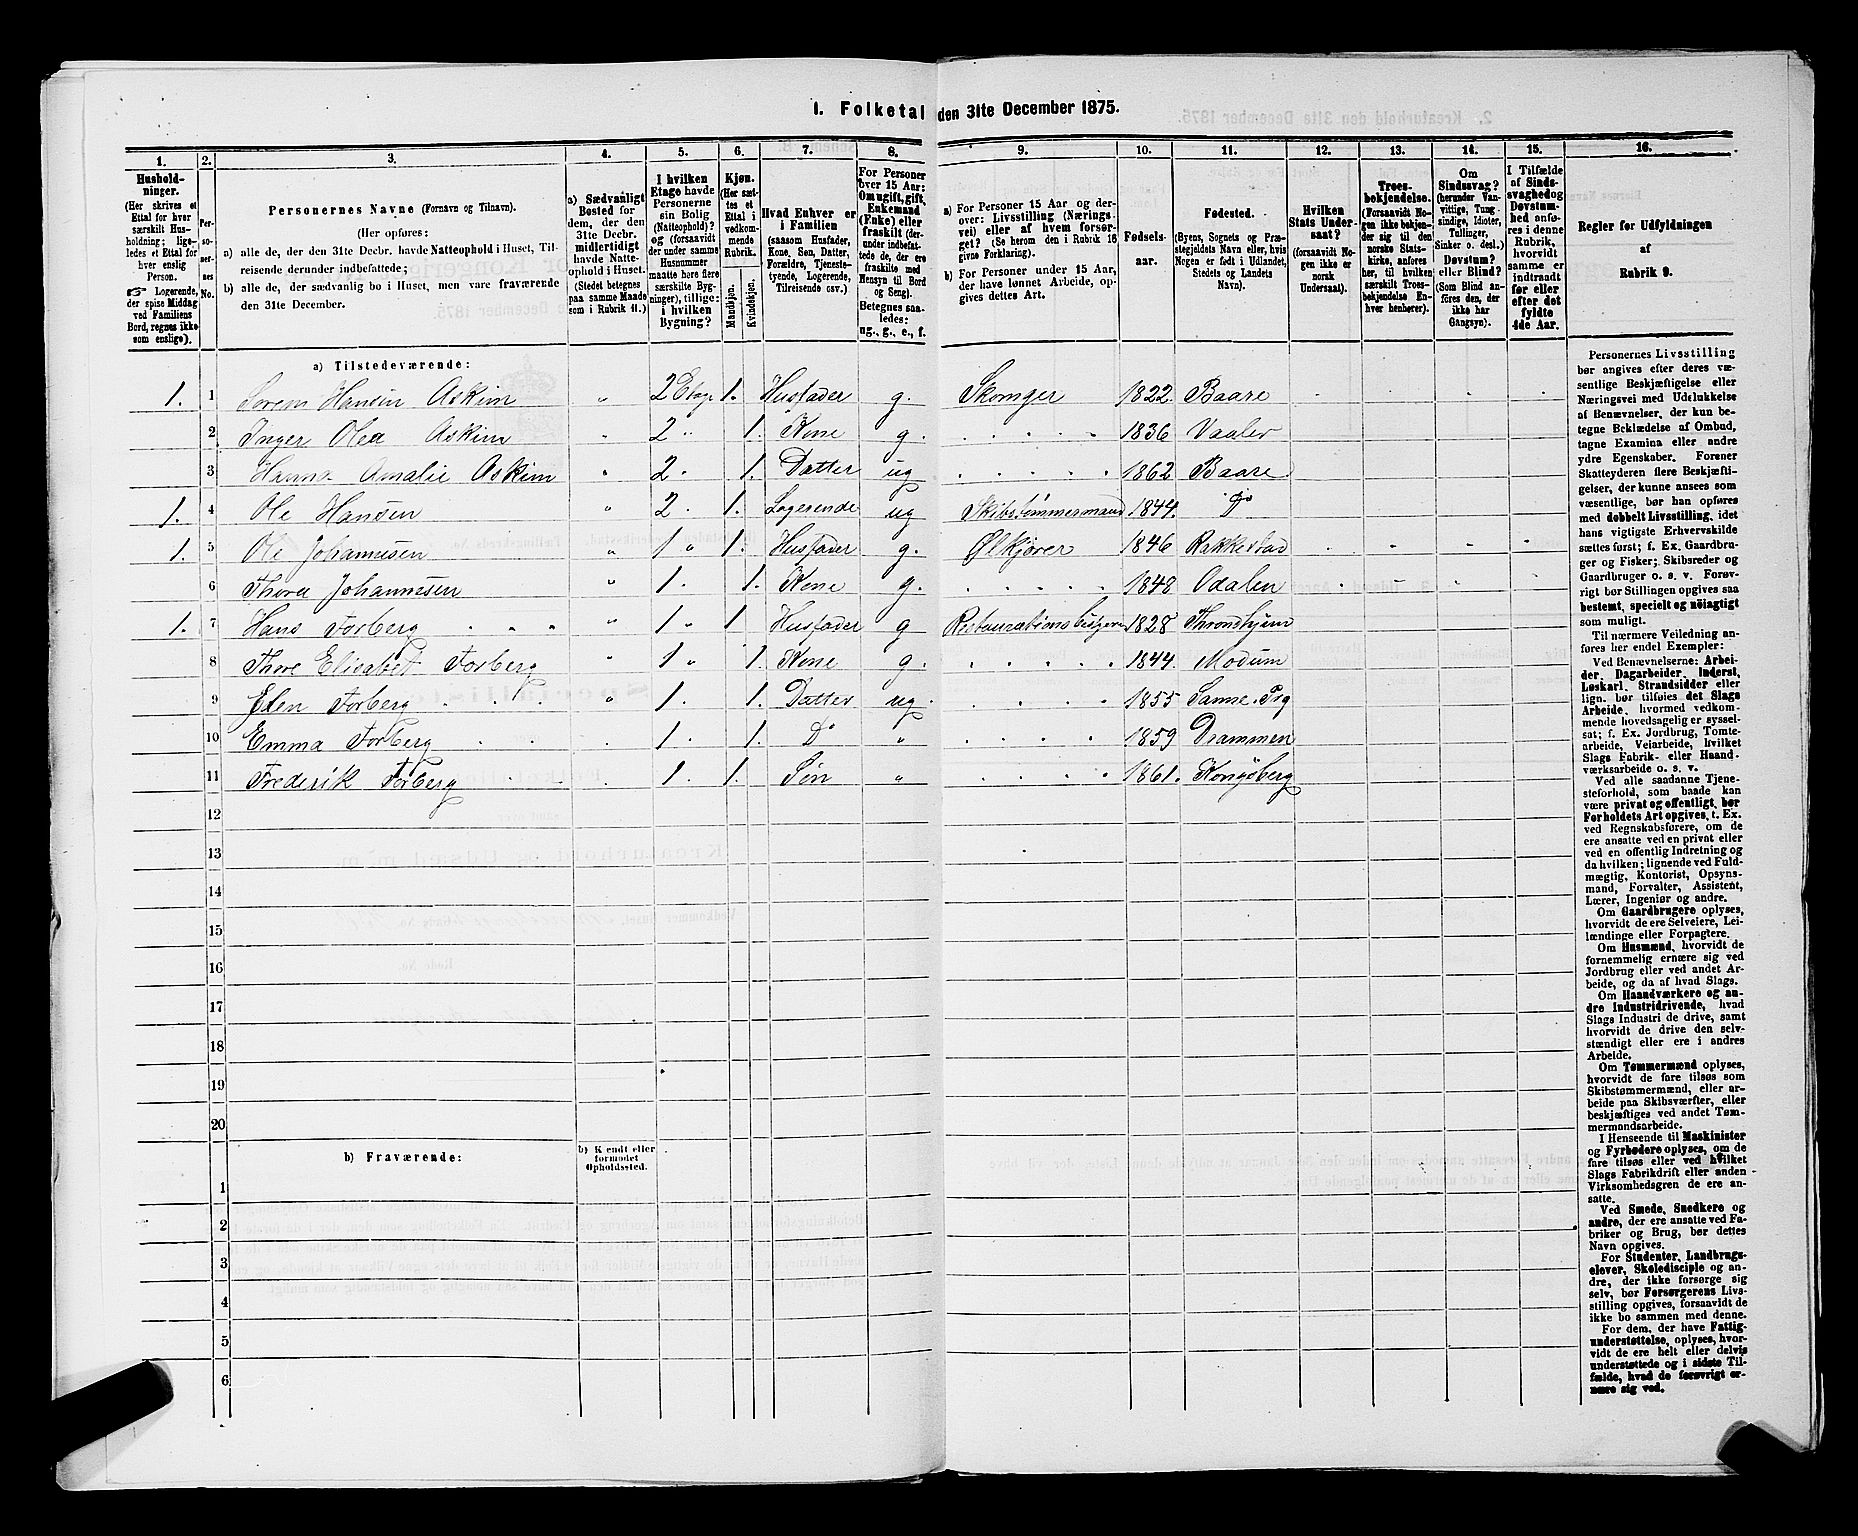 1. Folketal den 31te December 1875.
1. 2. 3. 4. 5. 6. 7. 8. 9. 10. 11. 12. 13. 14. 15. 16.
Hushold-
ninger.
(Her skrives et
Ettal for hver
særskilt Hus-
holdning; lige-
ledes et Ettal for
hver enslig
Person.
☞ Logerende,
der spise Middag
ved Familiens
Bord, regnes ikke
som enslige).
Per-
so-
ner-
nes
No.
Personernes Navne (Fornavn og Tilnavn).
(Her opføres:
a) alle de, der den 31te Decbr. havde Natteophold i Huset, Til-
reisende derunder indbefattede;
b) alle de, der sædvanlig bo i Huset, men vare fraværende
den 31te December.
a) Sædvanligt
Bosted for
dem, der den
31te Decbr.
midlertidigt
havde Natte-
ophold i Huset.
(Stedet betegnes
paa samme Maade
som i Rubrik 11.)
I hvilken
Etage havde
Personerne
sin Bolig
(Natteophold)?
og (forsaavidt
der under samme
Husnummer
maatte høre flere
særskilte Byg-
ninger), tillige:
i hvilken
Bygning?
Kjøn.
(Her sæt-
tes et
Ettal i
vedkom-
mende
Rubrik.
Mandkjøn.
Kvindekjøn.
Hvad Enhver er
i Familien
(saasom Husfader,
Kone, Søn, Datter,
Forældre, Tjeneste-
tyende, Logerende,
Tilreisende osv.).
For Personer
over 15 Aar:
Om ugift, gift,
Enkemand
(Enke) eller
fraskilt (der-
under indbefat-
tede de, der ere
fraskilte med
Hensyn til Bord
og Seng).
Betegnes saa-
ledes:
ug., g., e., f.
a) For Personer 15 Aar og der-
over: Livsstilling (Nærings-
vei) eller af hvem forsør-
get? (Se herom den i Rubrik 16
givne Forklaring).
b) For Personer under 15 Aar,
der have lønnet Arbeide, op-
gives dettes Art.
Fødsels-
aar.
Fødested.
(Byens, Sognets og Præ-
stegjeldets Navn eller, hvis
Nogen er født i Udlandet,
Stedets og Landets
Navn).
Hvilken
Stats Under-
saat?
(forsaavidt No-
gen ikke er
norsk
Undersaat).
Troes-
bekjendelse.
(Forsaavidt No-
gen ikke bekjen-
der sig til den
norske Stats-
kirke, anføres
her, til hvilken
særskilt Troes-
bekjendelse En-
hver henhører).
Om
Sindssvag?
(herunder Van-
vittige, Tung-
sindige, Idioter,
Tullinger,
Sinker o. desl.)
Døvstum?
eller Blind?
(Som Blind an-
føres den, der
ikke har
Gangsyn).
I Tilfælde
af Sinds-
svaghed og
Døvstum-
hed anfø-
res i denne
Rubrik,
hvorvidt
samme er
indtraadt
før eller
efter det
fyldte
4de Aar.
Regler for Udfyldningen
af
Rubrik 9.
a) Tilstedeværende:
1. 1 Søren Hansen Askim „ 2 Etag. 1. Husfader g. Skomger 1822. Baare
2 Inger Olea Askim „ 2 „ 1. Kone g. 1836 Vaaler
3 Hanna Amalie Askim „ 2 „ 1. Datter ug 1862 Baare
1. 4 Ole Hansen „ 2. 1. Logerende ug Skibstømmermand 1844. Do
1. 5 Ole Johannesen „ 1 „ 1. Husfader g. Ølkjører 1846 Rakkestad
6 Thora Johannesen „ 1. 1. Kone g. 1848 Odalen
1. 7 Hans Forberg „ 1 „ 1 Husfader g Restaurations 1828 Throndhjem
8 Thore Elisabet Forberg „ 1 „ 1. Kone g. 1844. Modum
9 Elen Forberg „ 1. 1. Datter ug. 1855 Sanne. Prg
10 Emma Forberg 1. 1. Do „ 1859 Drammen
11 Frederik Forberg 1. 1. Søn „ 1861. Kongsberg
12
13
14
15
16
17
18
19
20
b) Fraværende:
b) Kjendt eller
formodet
Opholdssted.
1
2
3
4
5
6
Personernes Livsstilling
bør angives efter deres væ-
sentlige Beskjæftigelse eller
Næringsvei med Udelukkelse
af Benævnelser, der kun be-
tegne Beklædelse af Ombud,
tagne Examina eller andre
ydre Egenskaber. Forener
Skatteyderen flere Beskjæfti-
gelser, der kunne ansees som
væsentlige, bør han opføres
med dobbelt Livsstilling, idet
hans vigtigste Erhvervskilde
sættes først; f. Ex. Gaardbru-
ger og Fisker; Skibsreder og
Gaardbruger o. s. v. Forøv-
rigt bør Stillingen opgives saa
bestemt, specielt og nøiagtigt
som muligt.
Til nærmere Veiledning an-
føres her endel Exempler:
Ved Benævnelserne: Arbei-
der, Dagarbeider, Inderst,
Løskarl, Strandsidder eller
lign. bør tilføies det Slags
Arbeide, hvormed vedkom-
mende hovedsagelig er syssel-
sat; f. Ex. Jordbrug, Tomte-
arbeide, Veiarbeide, hvilket
Slags Fabrik- eller Haand-
værksarbeide o. s. v.
Ved alle saadanne Tjene-
steforhold, som baade kan
være privat og offentligt, bør
Forholdets Art opgives, t. Ex.
ved Regnskabsførere, om de
ere ansatte ved en privat eller
ved en offentlig Indretning og
da hvilken; lignende ved Fuld-
mægtig, Kontorist, Opsyns-
mand, Forvalter, Assistent,
Lærer, Ingeniør og andre.
Om Gaardbrugere oplyses,
hvorvidt de ere Selveiere, Lei-
lændinge eller Forpagtere.
Om Husmænd, hvorvidt de
fornemmelig ernære sig ved
Jordbrug eller ved andet Ar-
beide, og da af hvad Slags.
Om Haandværkere og an-
dre Industridrivende, hvad
Slags Industri de drive, samt
hvorvidt de drive den selv-
stændigt eller ere i andres
Arbeide.
Om Tømmermænd oplyses,
hvorvidt de fare tilsøs som
Skibstømmermænd, eller ar-
beide paa Skibsværfter, eller
beskjæftiges ved andet Tøm-
mermandsarbeide.
I Henseende til Maskinister
og Fyrbødere oplyses, om de
fare tilsøs eller ved hvilket
Slags Fabrikdrift eller anden
Virksomhedsgren de ere an-
satte.
Ved Smede, Snedkere og
andre, der ere ansatte ved Fa-
briker og Brug, bør dettes
Navn opgives.
For Studenter, Landbrugs-
elever, Skoledisciple og an-
dre, der ikke forsørge sig
selv, bør Forsørgerens Livs-
stilling opgives, forsaavidt de
ikke bo sammen med denne.
For dem, der have Fattig-
understøttelse, oplyses, hvor-
vidt de ere helt eller delvis
understøttede og i sidste Til-
fælde, hvad de forøvrigt er-
nære sig ved.